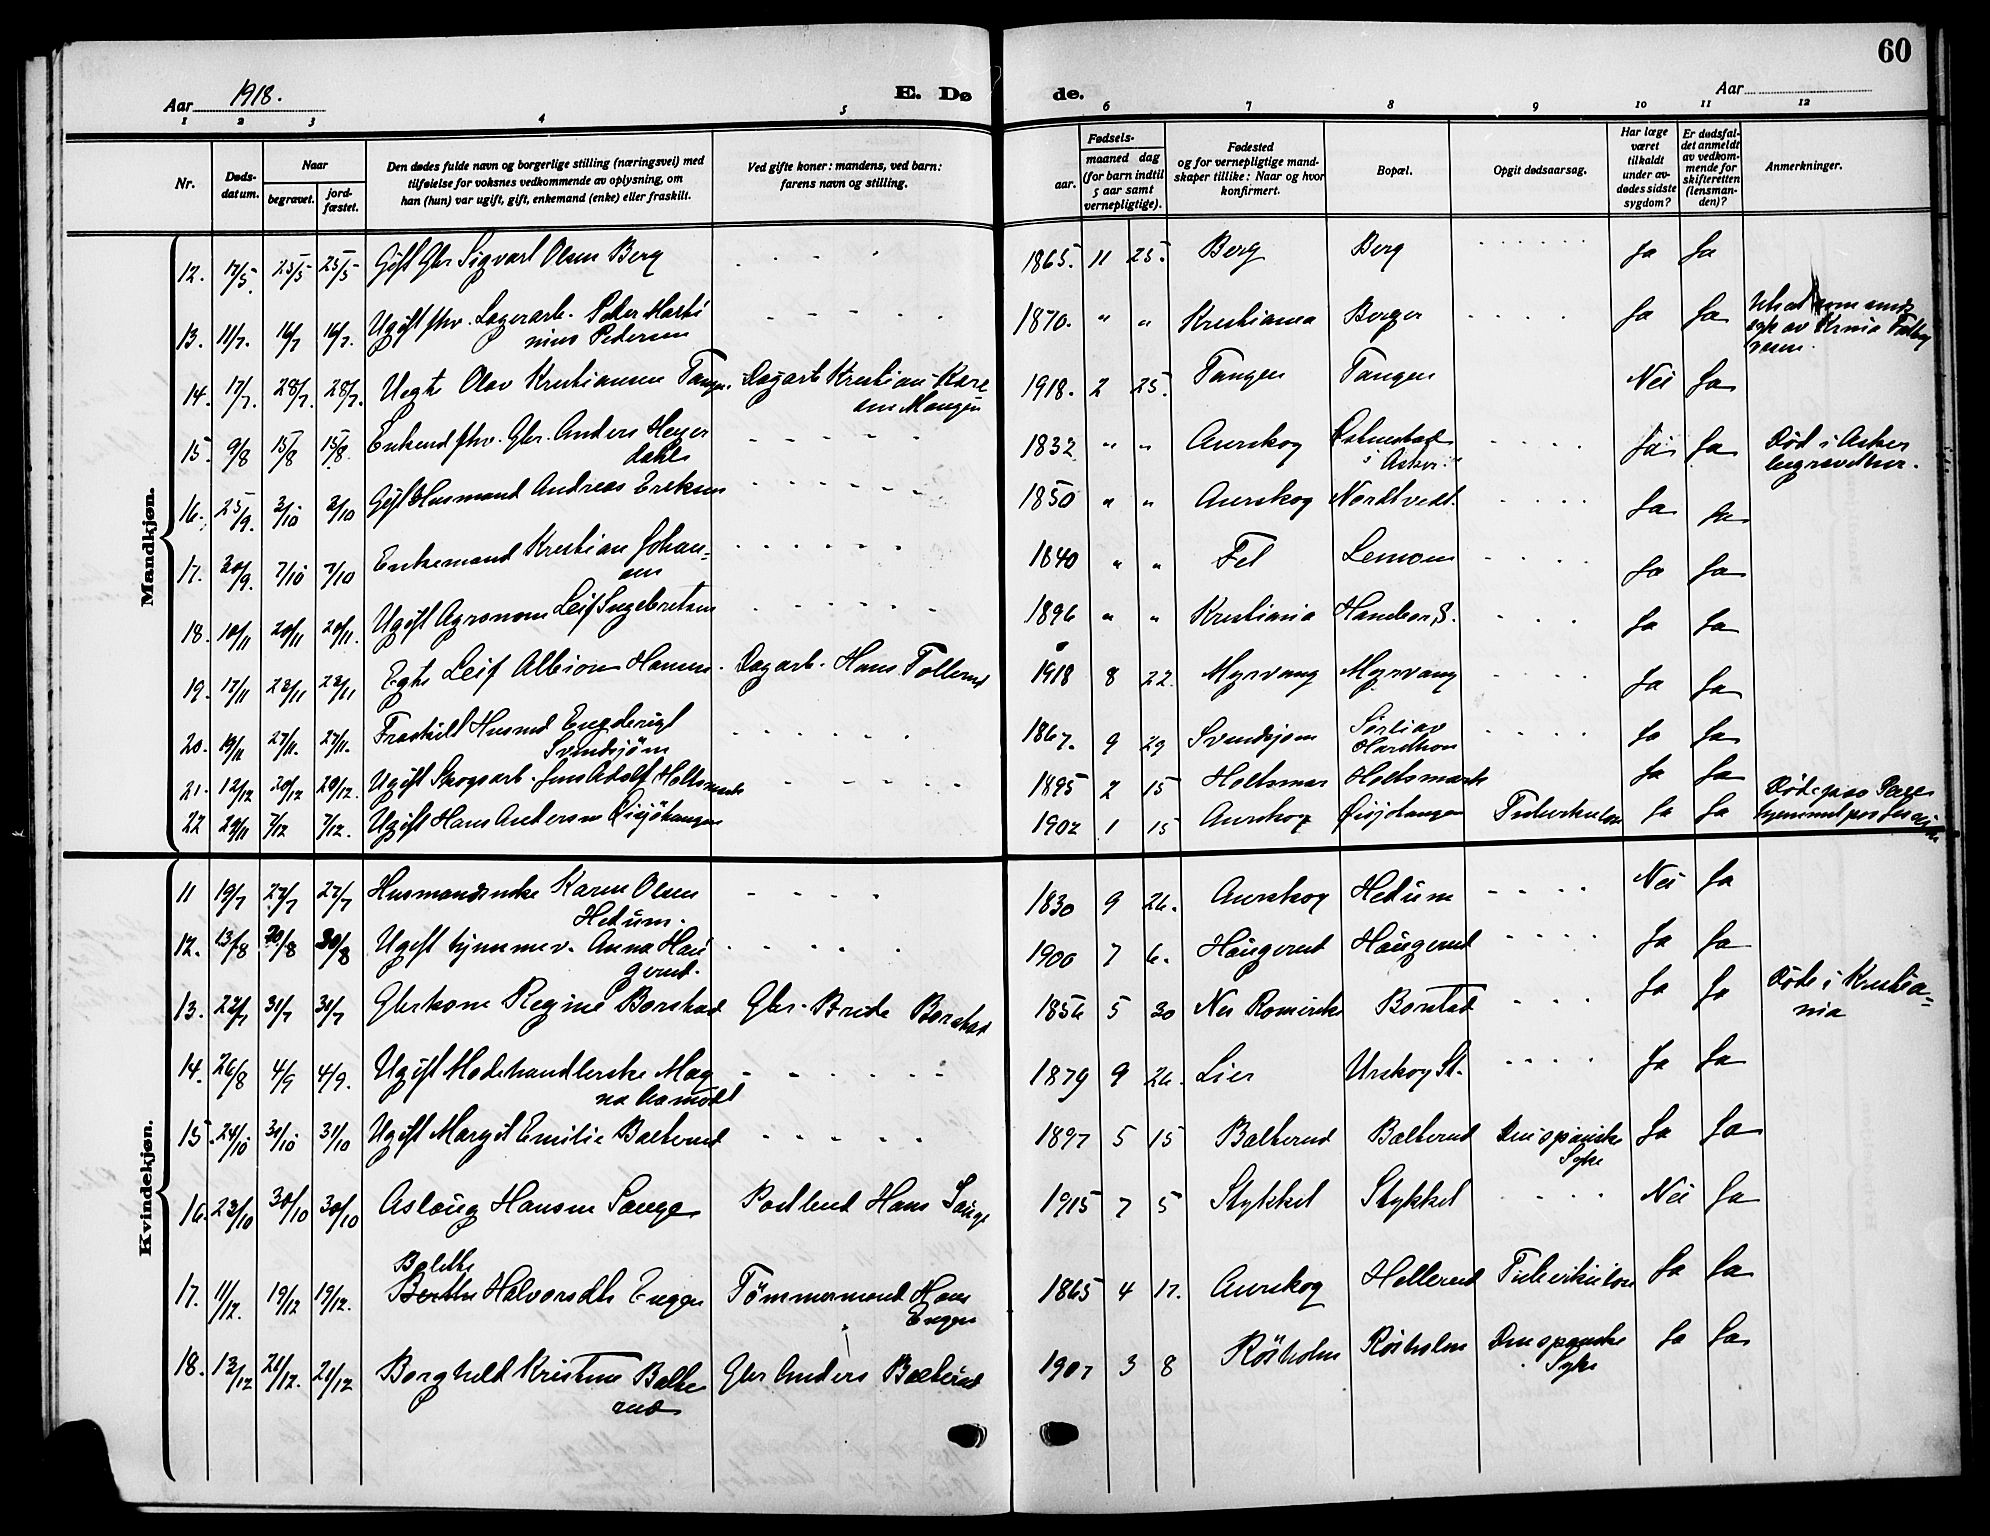 60
Aar 1918.
E. Dø
de.
Aar
1 2 3 4 5 6 7 8 9 10 11 12
Nr.
Døds-
datum.
Naar
begravet.
jord-
fæstet.
Den dødes fulde navn og borgerlige stilling (næringsvei) med
tilføielse for voksnes vedkommende av oplysning, om
han (hun) var ugift, gift, enkemand (enke) eller fraskilt.
Ved gifte koner: mandens, ved barn:
farens navn og stilling.
Fødsels-
aar.
maaned dag
(for barn indtil
5 aar samt
vernepligtige).
Fødested
og for vernepligtige mand-
skaper tillike: Naar og hvor
konfirmert.
Bopæl.
Opgit dødsaarsag.
Har læge
været
tilkaldt
under av-
dødes sidste
sygdom?
Er dødsfal-
det anmeldt
av vedkom-
mende for
skifteretten
(lensman-
den)?
Anmerkninger.
Mandkjøn.
12. 17/5. 25/5 25/5 Gift Gbr Sigvart Olsen Berg 1865. 11 25. Berg Berg Ja Ja
13. 11/7. 16/7 16/7. Ugift fhv. Lagerarb. Peder Marti
nius Pedersen 1870. " " Kristiania Berger Ja Ja
14. 17/7. 28/7. 28/7. Uegte Olav Kristiansen Tangen Dagarb Kristian Kare
Mangen 1918. 2 25. Tangen Tangen Nei Ja
15. 9/8 15/8 15/8. Enkemd fhv. Gbr. Anders Heyer
dahl 1832 " " Aurskog
i Asker. Ja Ja Død i Asker
begravet her.
16. 25/9. 2/10 2/10 Gift Husmand Andreas Eriksen 1850 " " Aurskog Nordtvedt. Ja Ja
17. 30/9. 7/10 7/10 Enkemand Kristian Johan-
sen 1840 " " Fet Lemom Ja Ja
18. 10/11 20/11 20/11. Ugift Agronom Leif Ingebretsen 1896 " " Kristiania Ja Ja
19. 17/11 23/11 23/11 Egte Leif Albion Hansen. Dagarb. Hans Tollerud 1918 8 22. Myrvang Myrvang Ja Ja
20. 19/11 27/11. 27/11. Fraskilt Husmd Engebrigt
Svendsjøm 1867. 9 29 Svendsjom Sørli av
Ja Ja
21. 12/12 20/12 20/12. Ugift Skogsarb. Jens Adolf Holtsmark 1895 2 15 Holtsmar Holtsmark Ja Ja
22 29/11 7/12 7/12. Ugift Hans Andersen 1902 1 15 Aurskog Tuberkulose Ja Ja
Kvindekjøn.
11 19/7 27/7 27/7 Husmandsenke Karen Olsen
Hedum. 1830 9 26. Aurskog Hedum Nei Ja
12. 13/8 20/8 20/8 Ugift hjemmev. Anna Hau
gerud. 1900 7 6. Haugerud Haugerud Ja Ja
13. 22/7 31/7 31/7 Gbrkone Regine Borstad Gbr. Brede Borstad 1856 5 30 Nes Romerike Borstad Ja Ja Døde i Kristia=
nia
14. 26/8 4/9 4/9. Ugift Modehandlerske Mag
na 1879 9 26. Lier Urskog St. Ja Ja
15. 24/10 31/10 31/10 Ugift Margit Emilie Balterud 1897 5 15 Balterud Balterud Den spanske
Syke Ja Ja
16. 23/10 30/10 30/10 Aslaug Hansen Sauge Postbud Hans Sauge 1915 7 5 Stykket Stykket Nei Ja
Bolette
17. 11/12. 19/12 19/12. Berthe Halvorsdtr Engen Tømmermand Hans
Engen 1865 4 17. Aurskog Hellerud Tuberkulose Ja Ja
18. 13/12 21/12. 21/12 Borghild Kristine Balte
rud Gbr Anders Balterud 1907 3 8 Røisholm Røisholm Den spanske
Syke Ja Ja